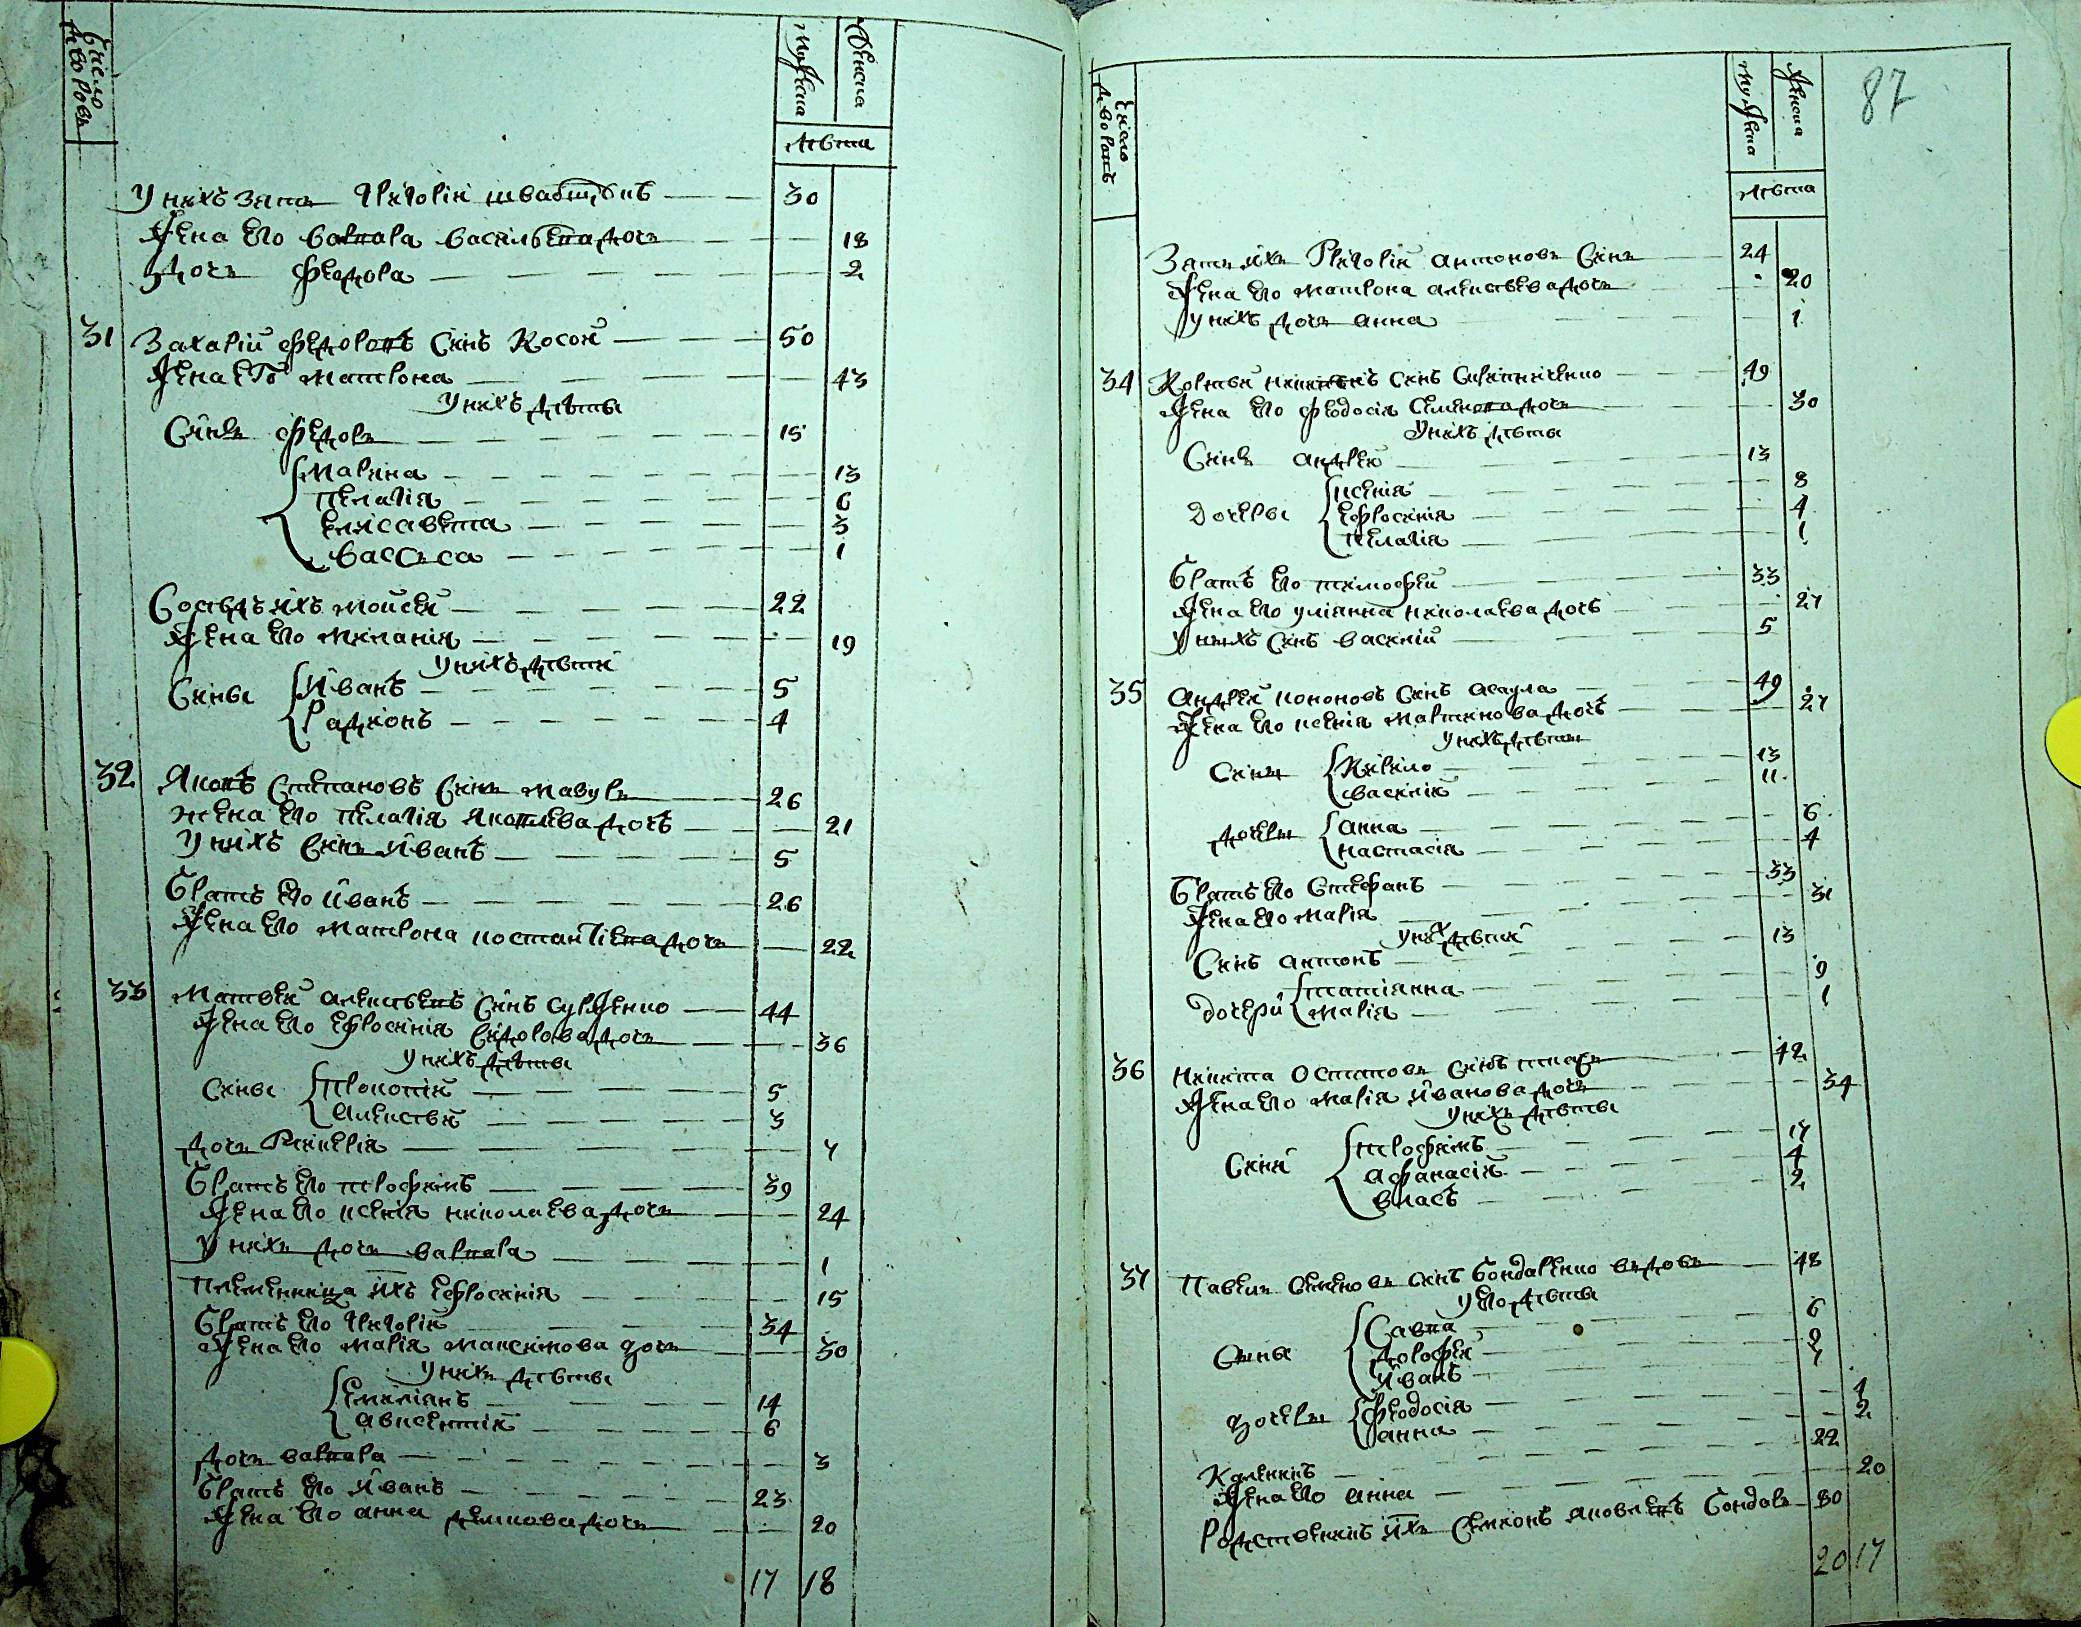 Число дворовъ
Мужеска
Женска
Лѣта
У нихъ зять Григорій — 30
Жена его Варвара Васильева дочь — 18
Дочь Федора — 2
31 Захарій Федоровъ синъ Косой — 50
Жена его Матрона — 43
У нихъ дѣты
Синъ Федоръ — 15
Марина — 13
Пелагія — 6
Елисавета — 3
Васса — 1
Сосѣдъ ихъ Мойсей — 22
Жена его Меланія — 19
У нихъ дѣти
Сины Иванъ — 5
Радіонъ — 4
32 Яковъ Степановъ синъ Мазуръ — 26
Жена его Пелагія Яковлева дочь — 21
У нихъ синъ Иванъ — 5
Братъ его Иванъ — 26
Жена его Матрона дочь — 22
33 Матвей Алексѣевъ синъ Сурженко — 44
Жена его Ефросинія Сидорова дочь — 36
У нихъ дѣты
Сины Прокопій — 5
Алексѣй — 3
Дочь Гликерія — 7
Братъ его Трофимъ — 39
Жена его Ксенія Николаева дочь — 24
У нихъ дочь Варвара — 1
Племенница ихъ Ефросинія — 15
Братъ его Григорій — 34
Жена его Марія Максимова дочь — 30
У нихъ дѣты
Емиліанъ — 14
Авксентій — 6
Дочь Варвара — 3
Братъ его Иванъ — 23
Жена его Анна Демкова дочь — 20
17 18
87
Число дворовъ
Мужеска
Женска
Лѣта
Зять ихъ Григорій Антоновъ синъ — 24
Жена его Матрона Алексѣева дочь — 20
У нихъ дочь Анна — 1
34 синъ — 49
Жена его Феодосія дочь — 30
У нихъ дѣты
Синъ Андрей — 13
Дочеры Ксенія — 8
Ефросинія — 4
Пелагія — 1
Братъ его Тимофей — 33
Жена его Уліянна Николаева дочь — 27
У нихъ синъ Василій — 5
35 Андрей Кононовъ синъ Асаула — 49
Жена его Ксенія Мартинова дочь — 27
У нихъ дѣты
Сины Кирило — 13
Василій — 11
Дочеры Анна — 6
Настасія — 4
Братъ его Стефанъ — 33
Жена его Марія — 31
У нихъ дѣти
Синъ Антонъ — 13
Дочери Татіянна — 9
Марія — 1
36 Никита Остаповъ синъ Ткачъ — 42
Жена его Марія Иванова дочь — 34
У нихъ дѣты
Сини Трофимъ — 17
Афанасій — 4
Власъ — 2
37 Павелъ Семеновъ синъ Бондаренко вдовъ — 48
У его дѣты
Сины Савка — 6
Дорофей — 9
Иванъ — 7
Дочеры Феодосія — 4
Анна — 2
— 22
Жена его Анна — 20
Родственникъ ихъ Симіонъ Яковлевъ Бондаръ — 30
20 17